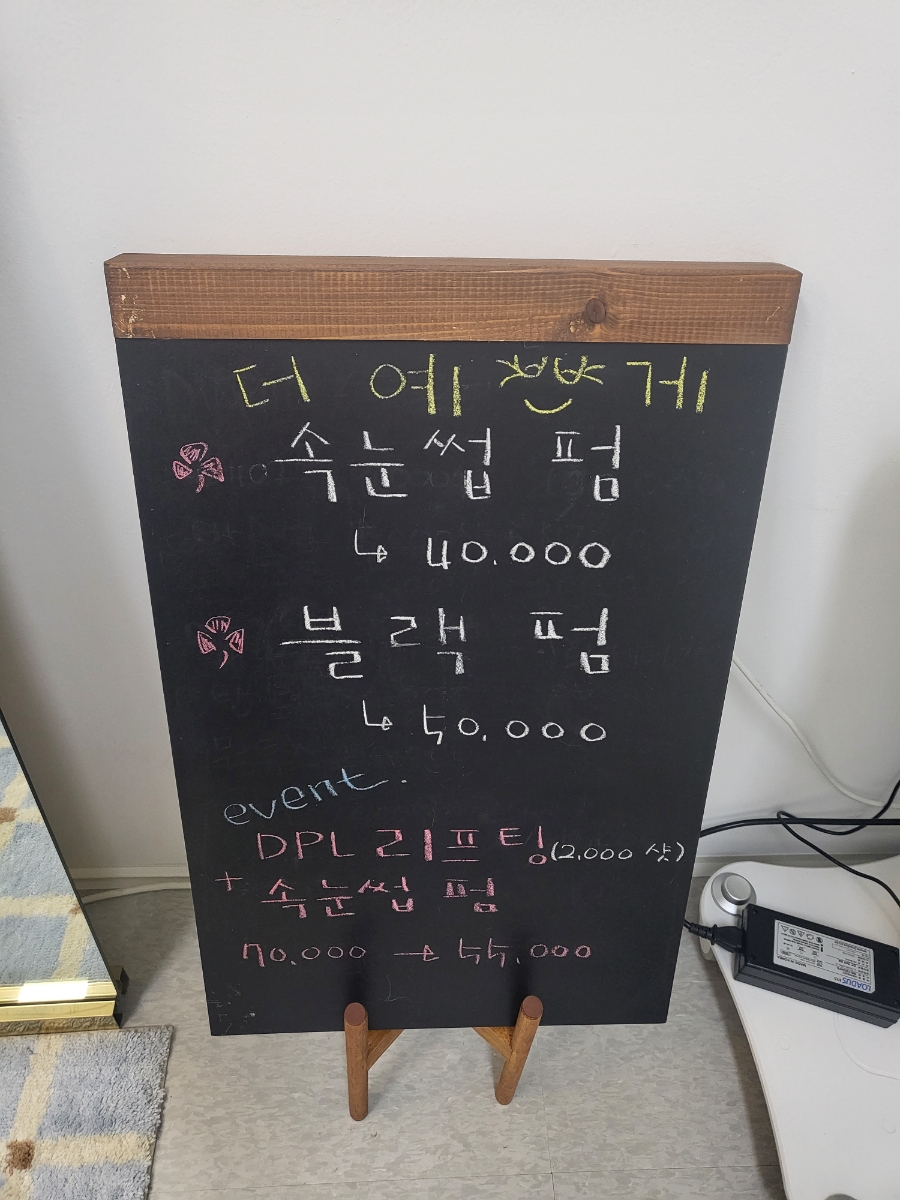 더 예쁘게
속눈썹 펌
↳ 40.000
블랙 펌
↳ 50.000
event.
DPL 리프팅(2,000 샷)
+ 속눈썹 펌
70.000 → 55.000
LOADUS